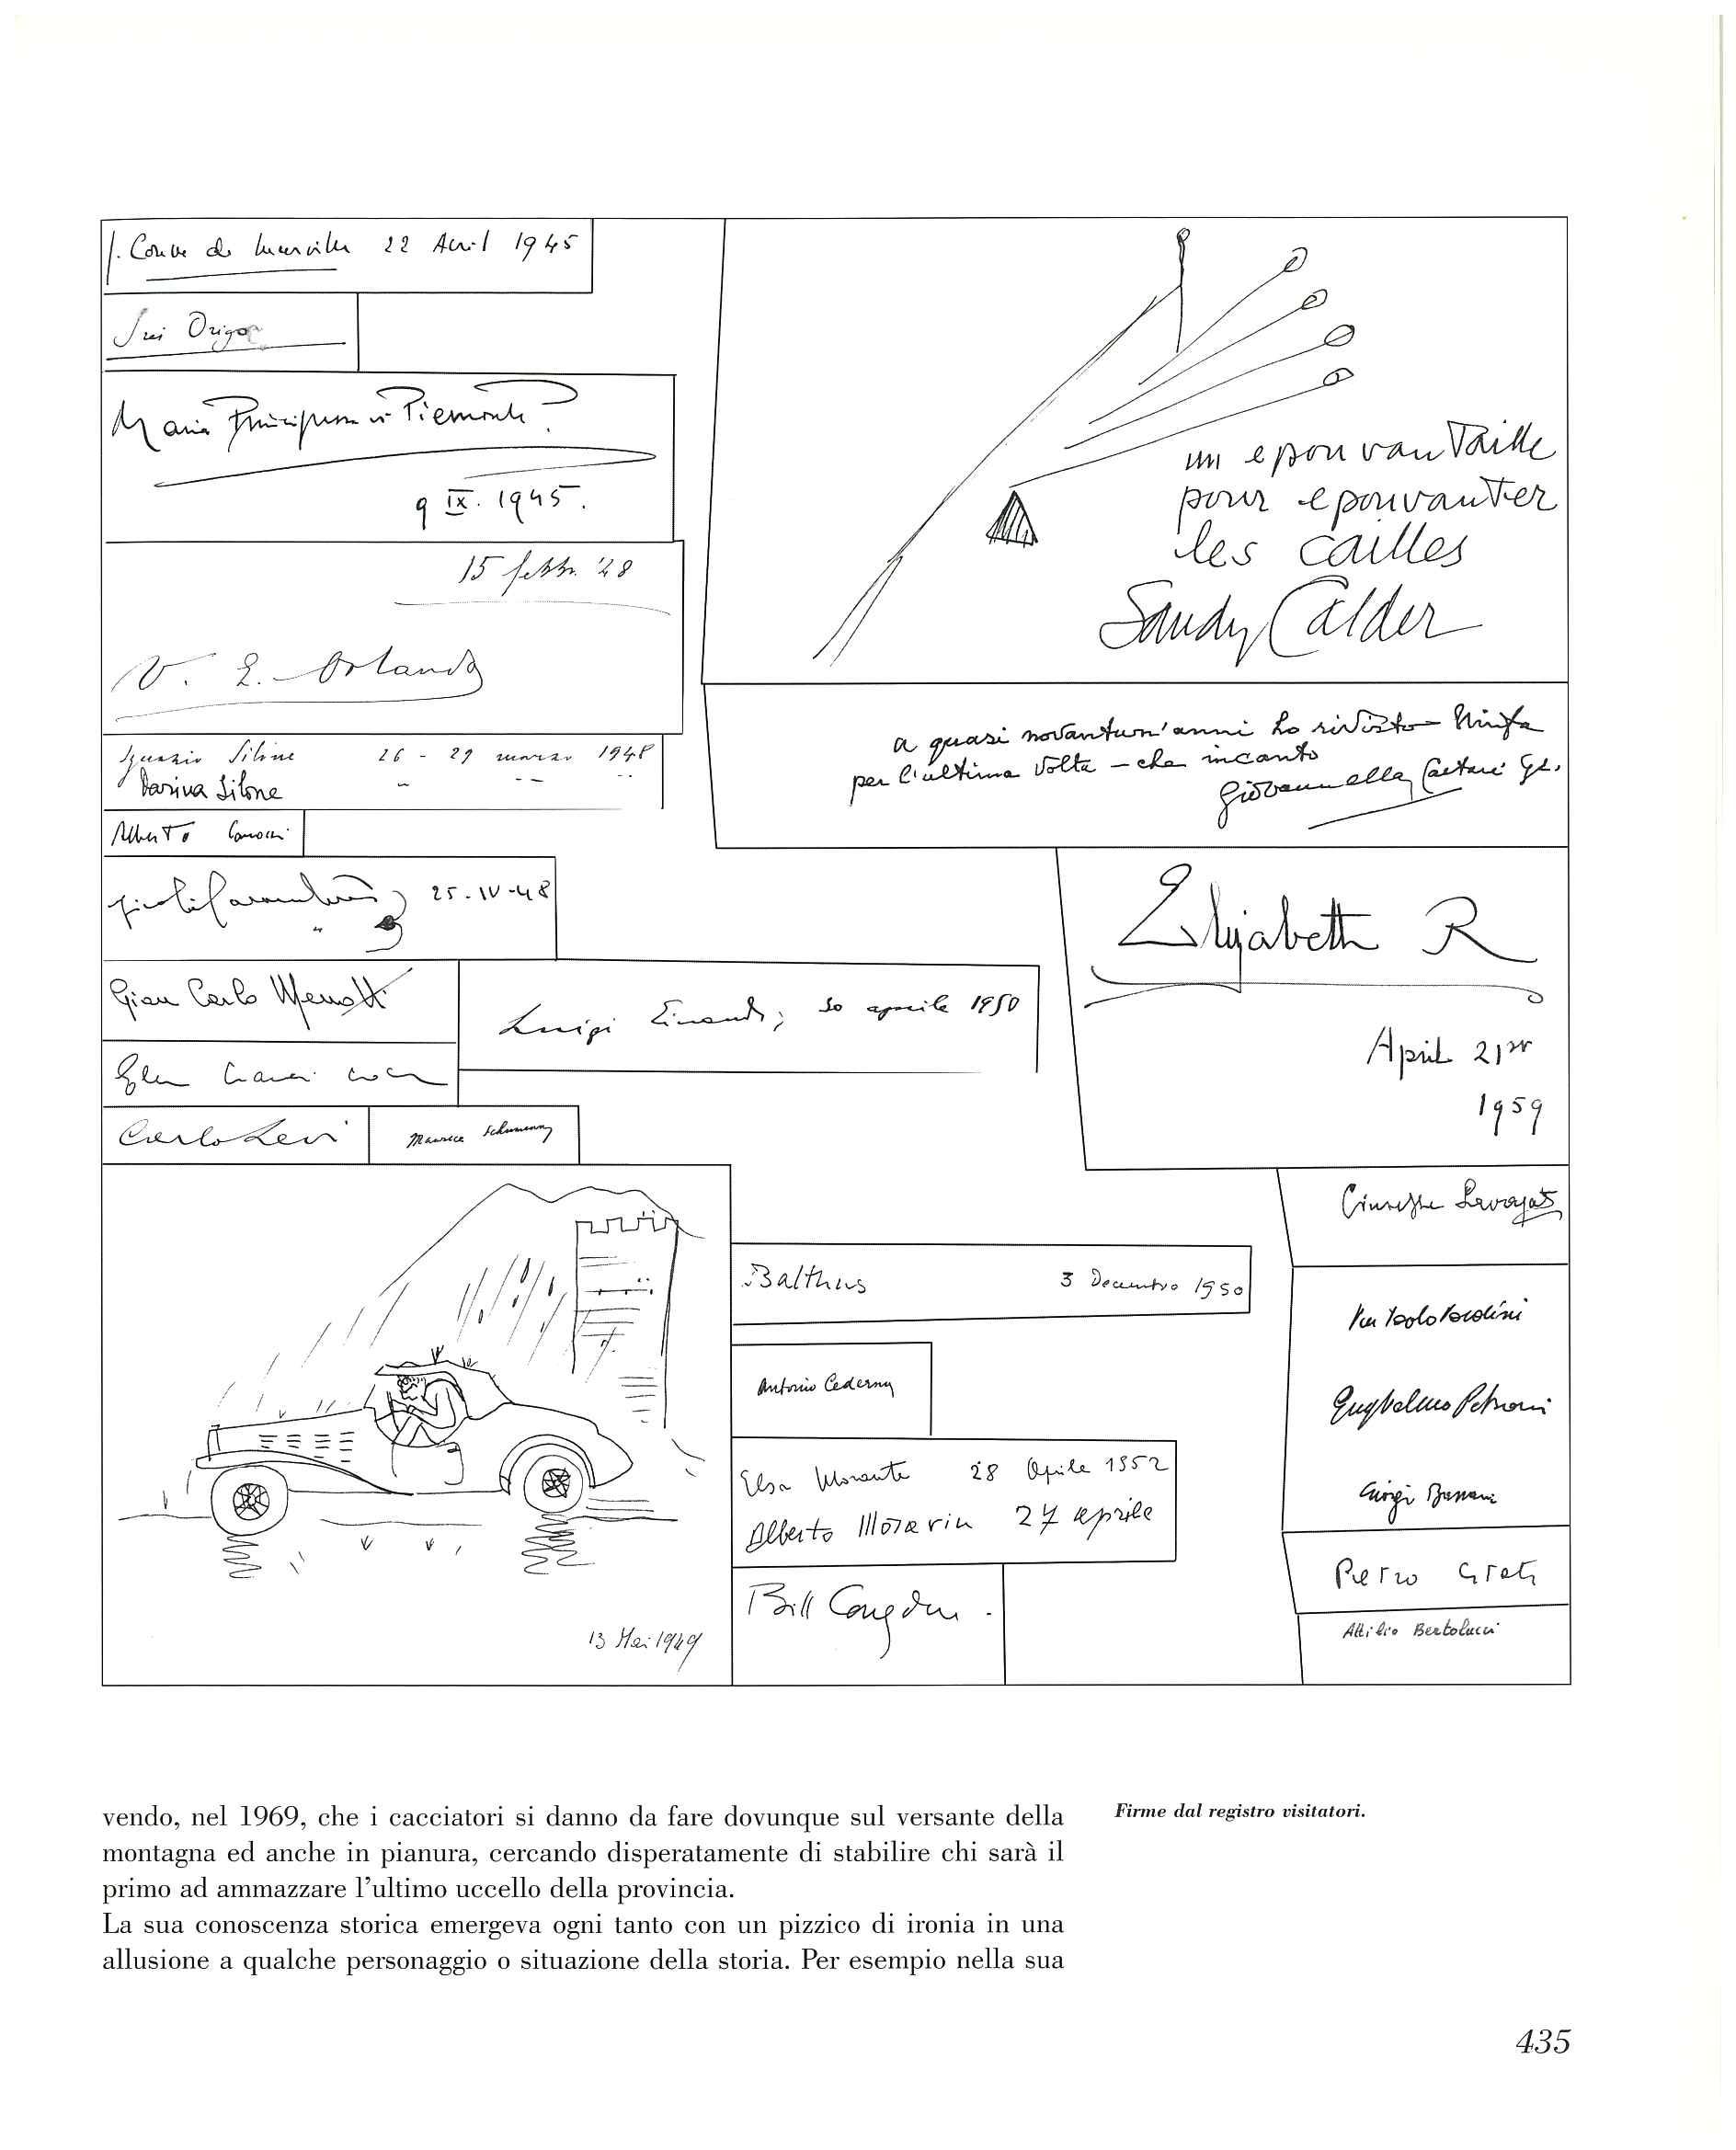 J. Couve de Murville 22 Avril 1945
Iris Origo
Maria Principessa di Piemonte
9 IX. 1945.
15 febbr. '48
V. E. Orlando
Ignazio Silone 26 - 29 marzo 1948
Darina Silone
Alberto
25-IV-48
Gian Carlo Menotti
Luigi Einaudi; 30 aprile 1950
Elena Croce
Carlo Levi
Maurice Schumann
13 Mai 1949
un epouvantaille
pour epouvanter
les cailles
Sandy Calder
a quasi novantun'anni ho rivisto Ninfa
per l'ultima volta – che incanto
Giovannella Caetani
Elizabeth R
April 21st
1959
Balthus 3 Decembro 1950
Antonio Cederna
Elsa Morante 28 Aprile 1952
Alberto Moravia 27 aprile
Bill Congdon.
Giuseppe
Pier Paolo Pasolini
Guglielmo Petroni
Giorgio Bassani
Pietro Citati
Attilio Bertolucci
vendo, nel 1969, che i cacciatori si danno da fare dovunque sul versante della
montagna ed anche in pianura, cercando disperatamente di stabilire chi sarà il
primo ad ammazzare l'ultimo uccello della provincia.
La sua conoscenza storica emergeva ogni tanto con un pizzico di ironia in una
allusione a qualche personaggio o situazione della storia. Per esempio nella sua
Firme dal registro visitatori.
435